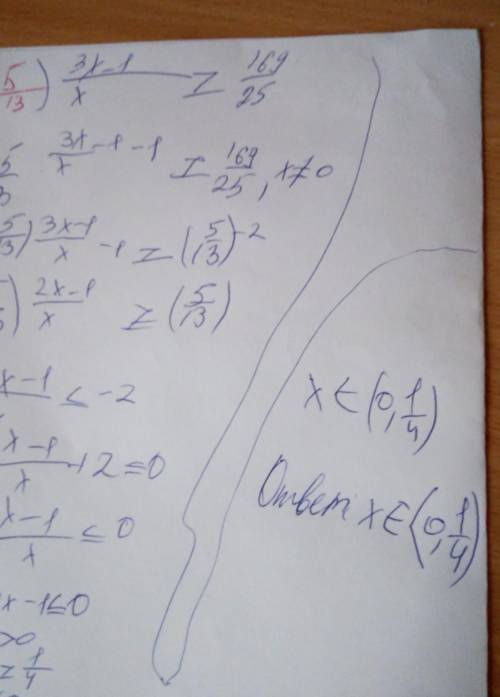 5/13) (3x-1)/x ≥ 169/25
5/13 3x/x -1 -1 ≥ 169/25, x≠0
5/13) (3x-1)/x -1 ≥ (5/13)^-2
) (2x-1)/x ≥ (5/13)
x-1 ≤ -2
x-1/x +2 ≤ 0
x-1/x ≤ 0
x-1≤0
>0
1/4
x∈(0,1/4)
Ответ x∈(0,1/4)